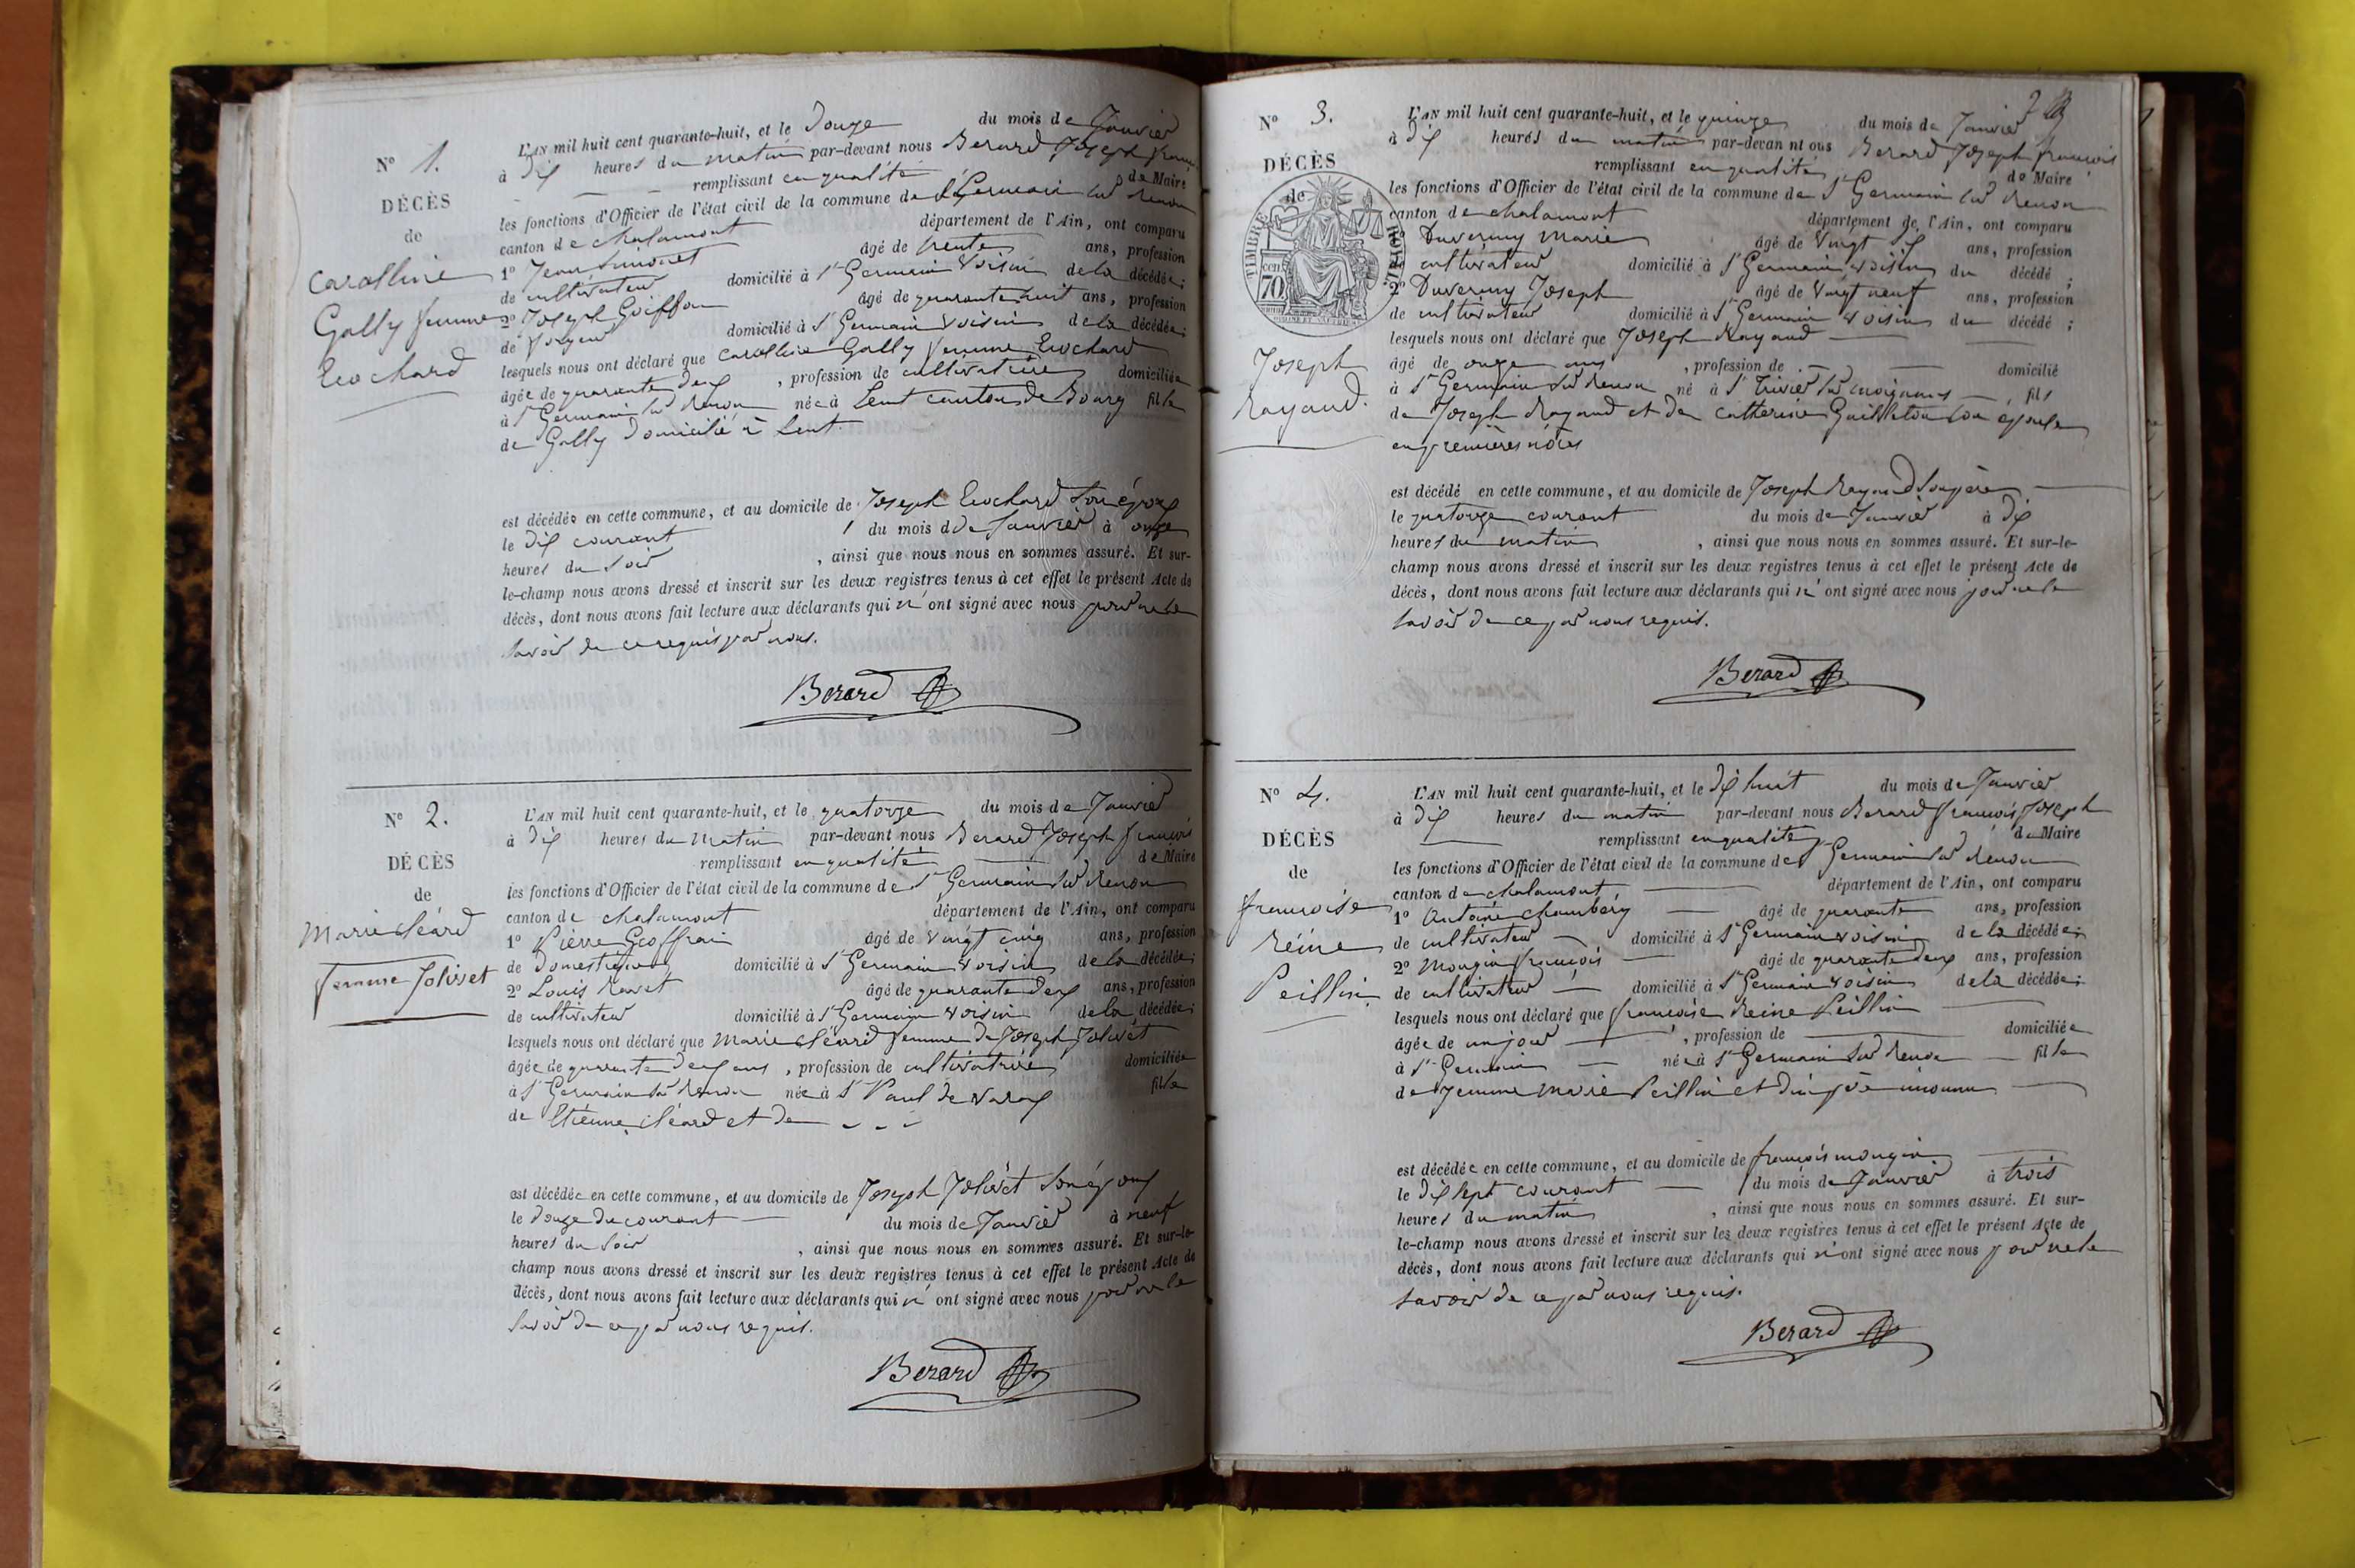 N° 1.
DÉCÈS
de
Carolline
Gally femme
Trochard
L'AN mil huit cent quarante-huit, et le Douze du mois de Janvier
à Dix heures du matin par-devant nous Berard Joseph françois
remplissant en qualité de Maire
les fonctions d'Officier de l'état civil de la commune de St Germain sur Renon
canton de chalamont département de l'Ain, ont comparu
1° Jean Simonet âgé de trente ans, profession
de cultivateur domicilié à St Germain voisin de la décédée;
2° Joseph Goiffon âgé de quarante huit ans, profession
de domicilié à St Germain voisin de la décédée;
lesquels nous ont déclaré que Carolline Gally femme Trochard
âgée de quarante deux , profession de cultivatrice domiciliée
à St Germain sur Renon née à Lent canton de Bourg fille
de Gally Domicilié à Lent.
est décédée en cette commune, et au domicile de Joseph Trochard son époux
le Dix courant du mois de Janvier à onze
heures du soir , ainsi que nous nous en sommes assuré. Et sur-
le-champ nous avons dressé et inscrit sur les deux registres tenus à cet effet le présent Acte de
décès, dont nous avons fait lecture aux déclarants qui n' ont signé avec nous pour ne le
savoir de ce requis par nous.
Berard
N° 2.
DÉCÈS
de
Marie Cléard
femme Jolivet
L'AN mil huit cent quarante-huit, et le quatorze du mois de Janvier
à Dix heures du matin par-devant nous Berard Joseph françois
remplissant en qualité de Maire
les fonctions d'Officier de l'état civil de la commune de St Germain sur Renon
canton de chalamont département de l'Ain, ont comparu
1° Pierre Geoffrai âgé de vingt cinq ans, profession
de Domestique domicilié à St Germain voisin de la décédée;
2° Louis Revet âgé de quarante deux ans, profession
de cultivateur domicilié à St Germain voisin de la décédée;
lesquels nous ont déclaré que Marie Cléard femme de Joseph Jolivet
âgée de quarante deux ans , profession de cultivatrice domiciliée
à St Germain sur Renon née à St Paul de varax fille
de Etienne Cléard et de - - -
est décédée en cette commune, et au domicile de Joseph Jolivet son époux
le Douze du courant du mois de Janvier à neuf
heures du soir , ainsi que nous nous en sommes assuré. Et sur-le-
champ nous avons dressé et inscrit sur les deux registres tenus à cet effet le présent Acte de
décès, dont nous avons fait lecture aux déclarants qui n' ont signé avec nous pour ne le
savoir de ce par nous requis.
Berard
N° 3.
DÉCÈS
de
TIMBRE ROYAL
cen
70
Joseph
Rayaud.
L'AN mil huit cent quarante-huit, et le quinze du mois de Janvier
à Dix heures du matin par-devan nt ous Berard Joseph françois
remplissant en qualité de Maire
les fonctions d'Officier de l'état civil de la commune de St Germain sur Renon
canton de chalamont département de l'Ain, ont comparu
Duverney Marie âgé de vingt six ans, profession
cultivateur domicilié à St Germain voisin du décédé ;
2° Duverney Joseph âgé de vingt neuf ans, profession
de cultivateur domicilié à St Germain voisin du décédé ;
lesquels nous ont déclaré que Joseph Rayaud
âgé de onze ans , profession de domicilié
à St Germain sur Renon né à St Trivier sur moignans , fils
de Joseph Rayaud et de Catherine Guilleton son épouse
en premières nôces
est décédé en cette commune, et au domicile de Joseph Rayaud son père
le quatorze courant du mois de Janvier à Dix
heures du matin , ainsi que nous nous en sommes assuré. Et sur-le-
champ nous avons dressé et inscrit sur les deux registres tenus à cet effet le présent Acte de
décès, dont nous avons fait lecture aux déclarants qui n' ont signé avec nous pour ne le
savoir de ce par nous requis.
Berard
N° 4.
DÉCÈS
de
françoise
Réine
Peillin
L'AN mil huit cent quarante-huit, et le Dix huit du mois de Janvier
à Dix heures du matin par-devant nous Berard françois Joseph
remplissant en qualité de Maire
les fonctions d'Officier de l'état civil de la commune de St Germain sur Renon
canton de chalamont, département de l'Ain, ont comparu
1° Antoine Chambéry âgé de quarante ans, profession
de cultivateur domicilié à St Germain voisin de la décédée;
2° Mongin françois âgé de quarante deux ans, profession
de cultivateur domicilié à St Germain voisin de la décédée;
lesquels nous ont déclaré que françoise Reine Peillin
âgée de un jour , profession de domiciliée
à St Germain née à St Germain sur Renon fille
de Jeanne Marie Peillin et d'un père inconnu
est décédée en cette commune, et au domicile de françois mongin
le Dix sept courant du mois de Janvier à trois
heures du matin , ainsi que nous nous en sommes assuré. Et sur-
le-champ nous avons dressé et inscrit sur les deux registres tenus à cet effet le présent Acte de
décès, dont nous avons fait lecture aux déclarants qui n' ont signé avec nous pour ne le
savoir de ce par nous requis.
Berard